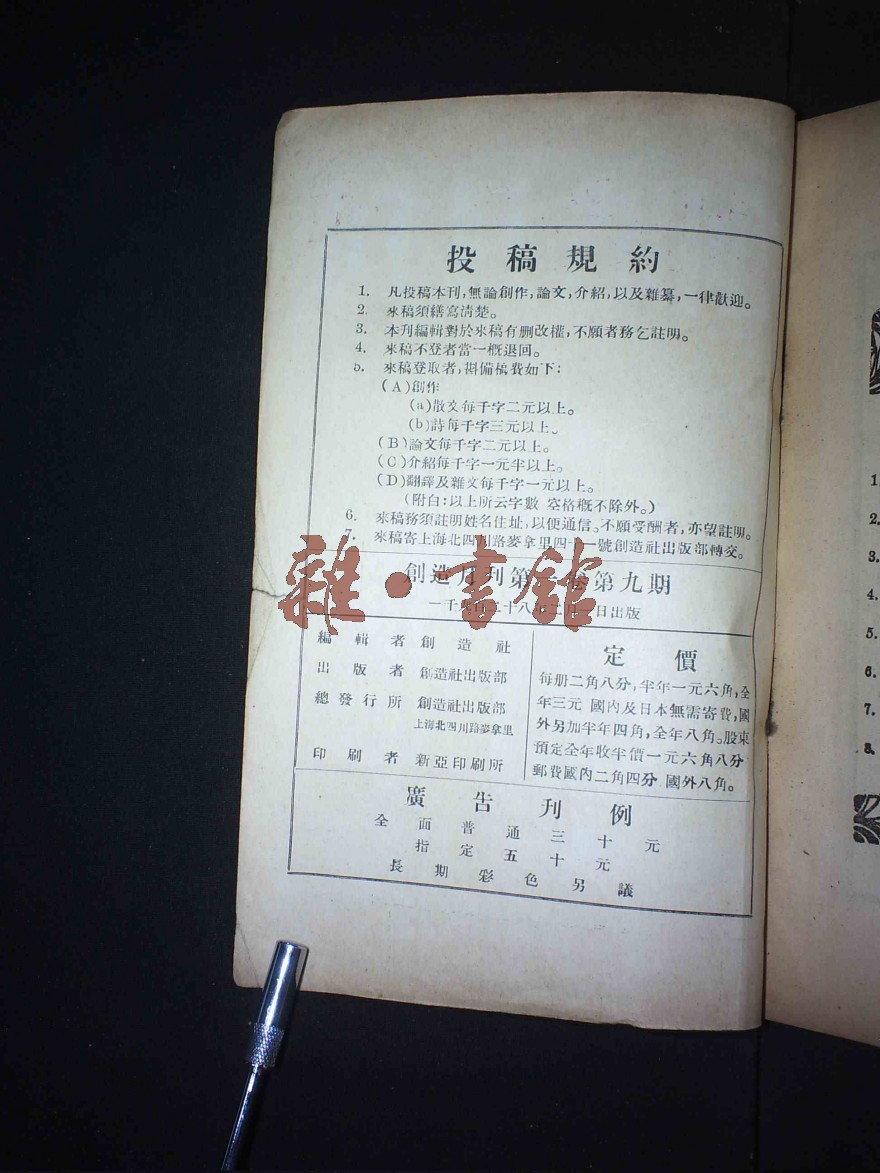 投稿規約
1. 凡投稿本刊,無論創作,論文,介紹,以及雜纂,一律歡迎。
2. 來稿須繕寫清楚。
3. 本刊編輯對於來稿有刪改權,不願者務乞註明。
4. 來稿不登者當一概退回。
5. 來稿登取者,斟備稿費如下:
(A)創作
(a)散文每千字二元以上。
(b)詩每千字三元以上。
(B)論文每千字二元以上。
(C)介紹每千字一元半以上。
(D)翻譯及雜文每千字一元以上。
(附白:以上所云字數 空格概不除外。)
6. 來稿務須註明姓名住址,以便通信。不願受酬者,亦望註明。
7. 來稿寄上海北四川路麥拿里四十一號創造社出版部轉交。
雜·書館
創造月刊第一卷第九期
一千九百二十八年二月一日出版
編輯者 創造社
出版者 創造社出版部
總發行所 創造社出版部
上海北四川路麥拿里
印刷者 新亞印刷所
定價
每册二角八分,半年一元六角,全
年三元 國內及日本無需寄費,國
外另加半年四角,全年八角。股東
預定全年收半價一元六角八分
郵費國內二角四分 國外八角。
廣告刊例
全面普通三十元
指定五十元
長期彩色另議
1.
2.
3.
4.
5.
6.
7.
8.